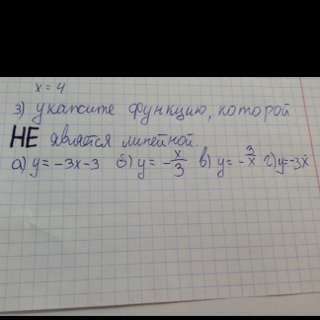 x = 4
3) укажите функцию, которой
НЕ является линейной
а) y = -3x-3 б) y = -x/3 в) y = -3/x г) y=-3x